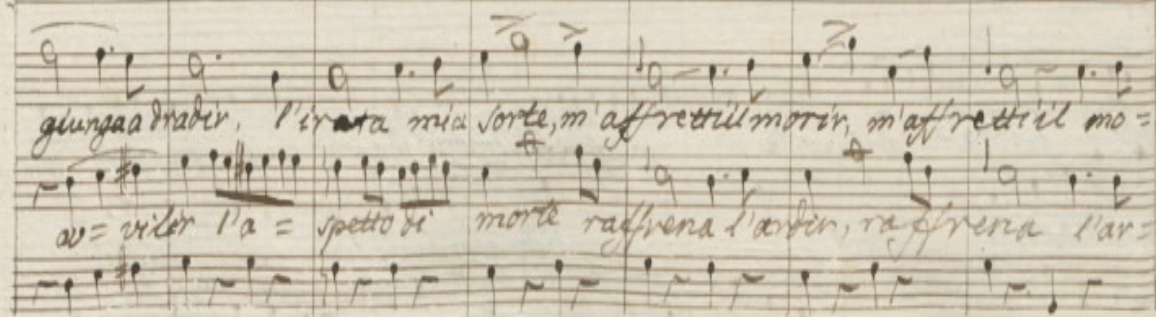 giunga a dradir, l'irata mia sorte, m'affretti il morir, m'affretti il mo=
av=vilir l'a=spetto di morte raffrena l'ardir, raffrena l'ar=